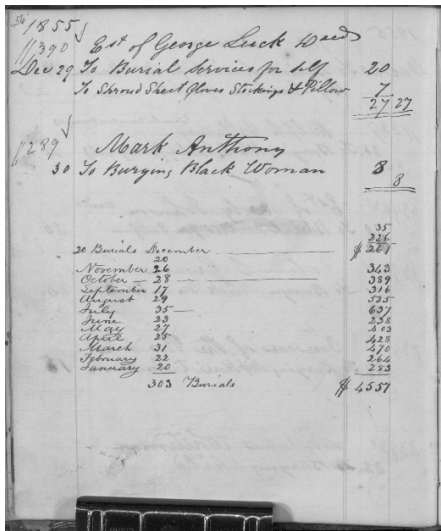 36
1855
390 Est of George Lusk Decd
Dec 29 To Burial Services for Self 20
To Shroud Sheet Gloves Stockings & Pillow 7
27 27
289 Mark Anthony
30 To Burying Black Woman 8
8
35
226
20 Burials December $ 261
20
November 26 343
October 28 389
September 17 316
August 29 525
July 35 637
June 23 238
May 27 403
April 25 428
March 31 470
February 22 264
January 20 283
303 Burials $ 4557